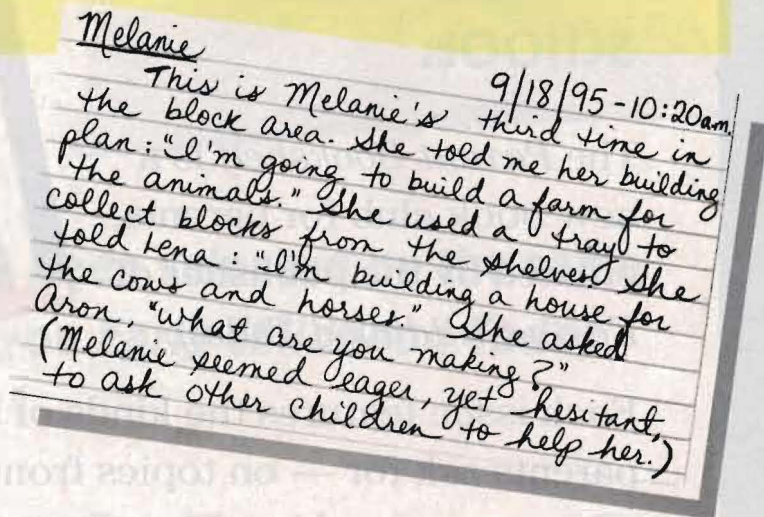 Melanie
9/18/95-10:20a.m.
This is Melanie's third time in
the block area. She told me her building
plan: "I'm going to build a farm for
the animals." She used a tray to
collect blocks from the shelves. She
told Lena: "I'm building a house for
the cows and horses." She asked
Aron, "What are you making?"
(Melanie seemed eager, yet hesitant,
to ask other children to help her.)